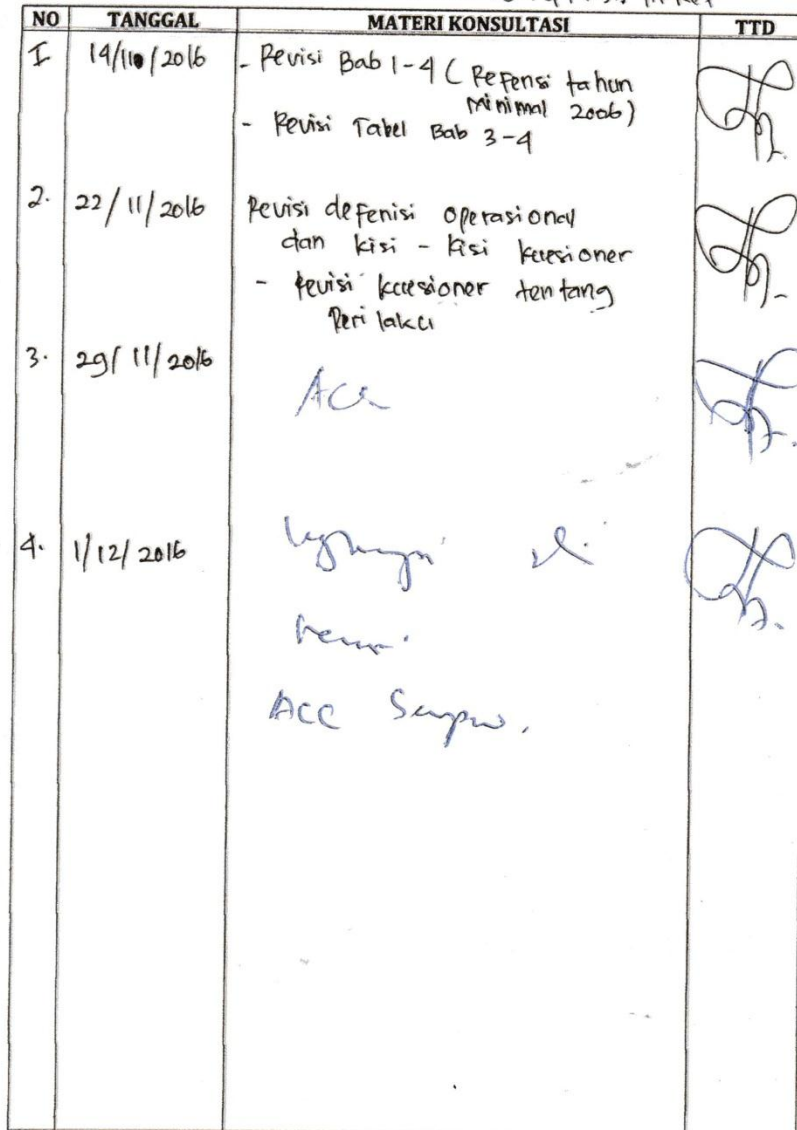 NO TANGGAL MATERI KONSULTASI TTD
I 14/11/2016 - Revisi Bab 1-4 (Refensi tahun
Minimal 2006)
- Revisi Tabel Bab 3-4
2. 22/11/2016 Revisi defenisi operasional
dan kisi - kisi kuesioner
- Revisi kuesioner tentang
Perilaku
3. 29/11/2016 Acc
4. 1/12/2016
ACC Sempro.